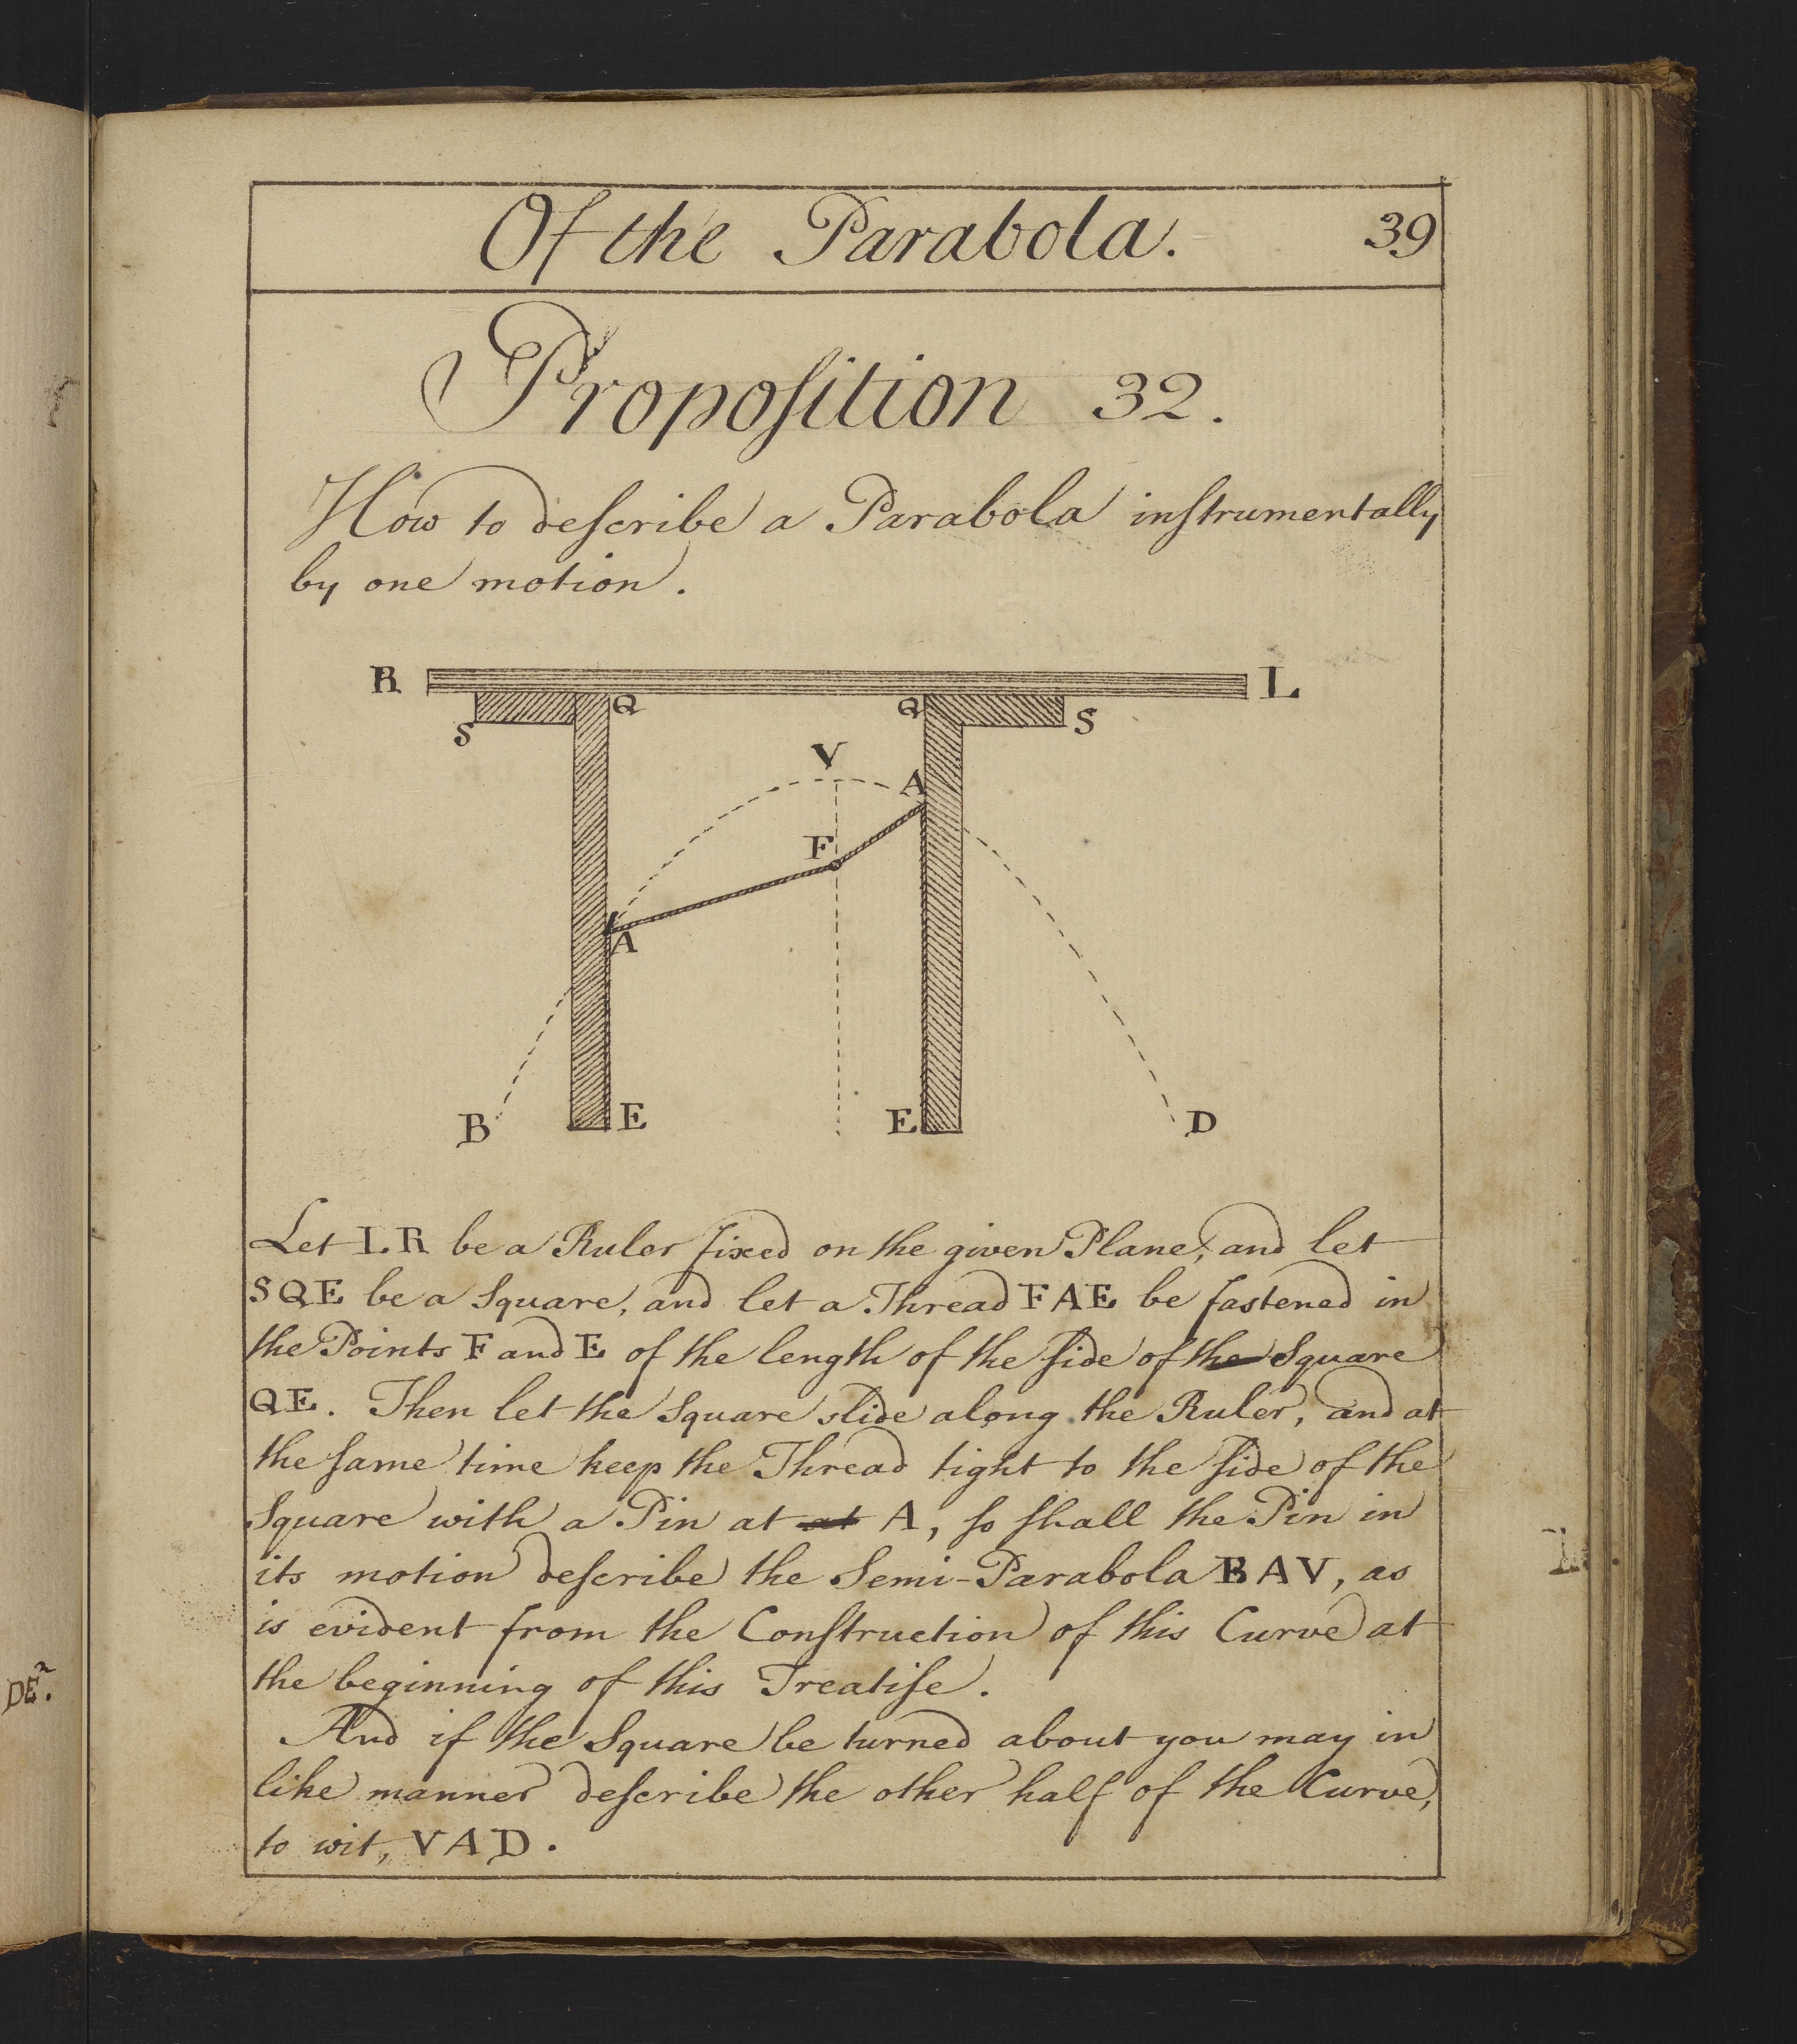 Of the Parabola. 39
Propoſition 32.
How to deſcribe a Parabola inſtrumentally
by one motion.
R L
S Q Q S
V
A
F
A
B E E D
Let LR be a Ruler fixed on the given Plane, and let
SQE be a Square, and let a Thread FAE be fastened in
the Points F and E of the length of the ſide of the Square
QE. Then let the Square slide along the Ruler, and at
the ſame time keep the Thread tight to the ſide of the
Square with a Pin at at A, ſo ſhall the Pin in
its motion deſcribe the Semi-Parabola BAV, as
is evident from the Conſtruction of this Curve at
the beginning of this Treatiſe.
And if the Square be turned about you may in
like manner deſcribe the other half of the Curve,
to wit, VAD.
DE².